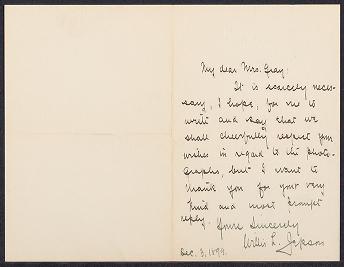 My dear Mrs. Gray:
It is scarcely neces-
sary, I hope, for me to
write and say that we
shall cheerfully respect your
wishes in regard to the photo-
graphs, but I want to
thank you for your very
kind and most prompt
reply. Yours Sincerely
Willis L. Jepson
Dec. 3, 1894.